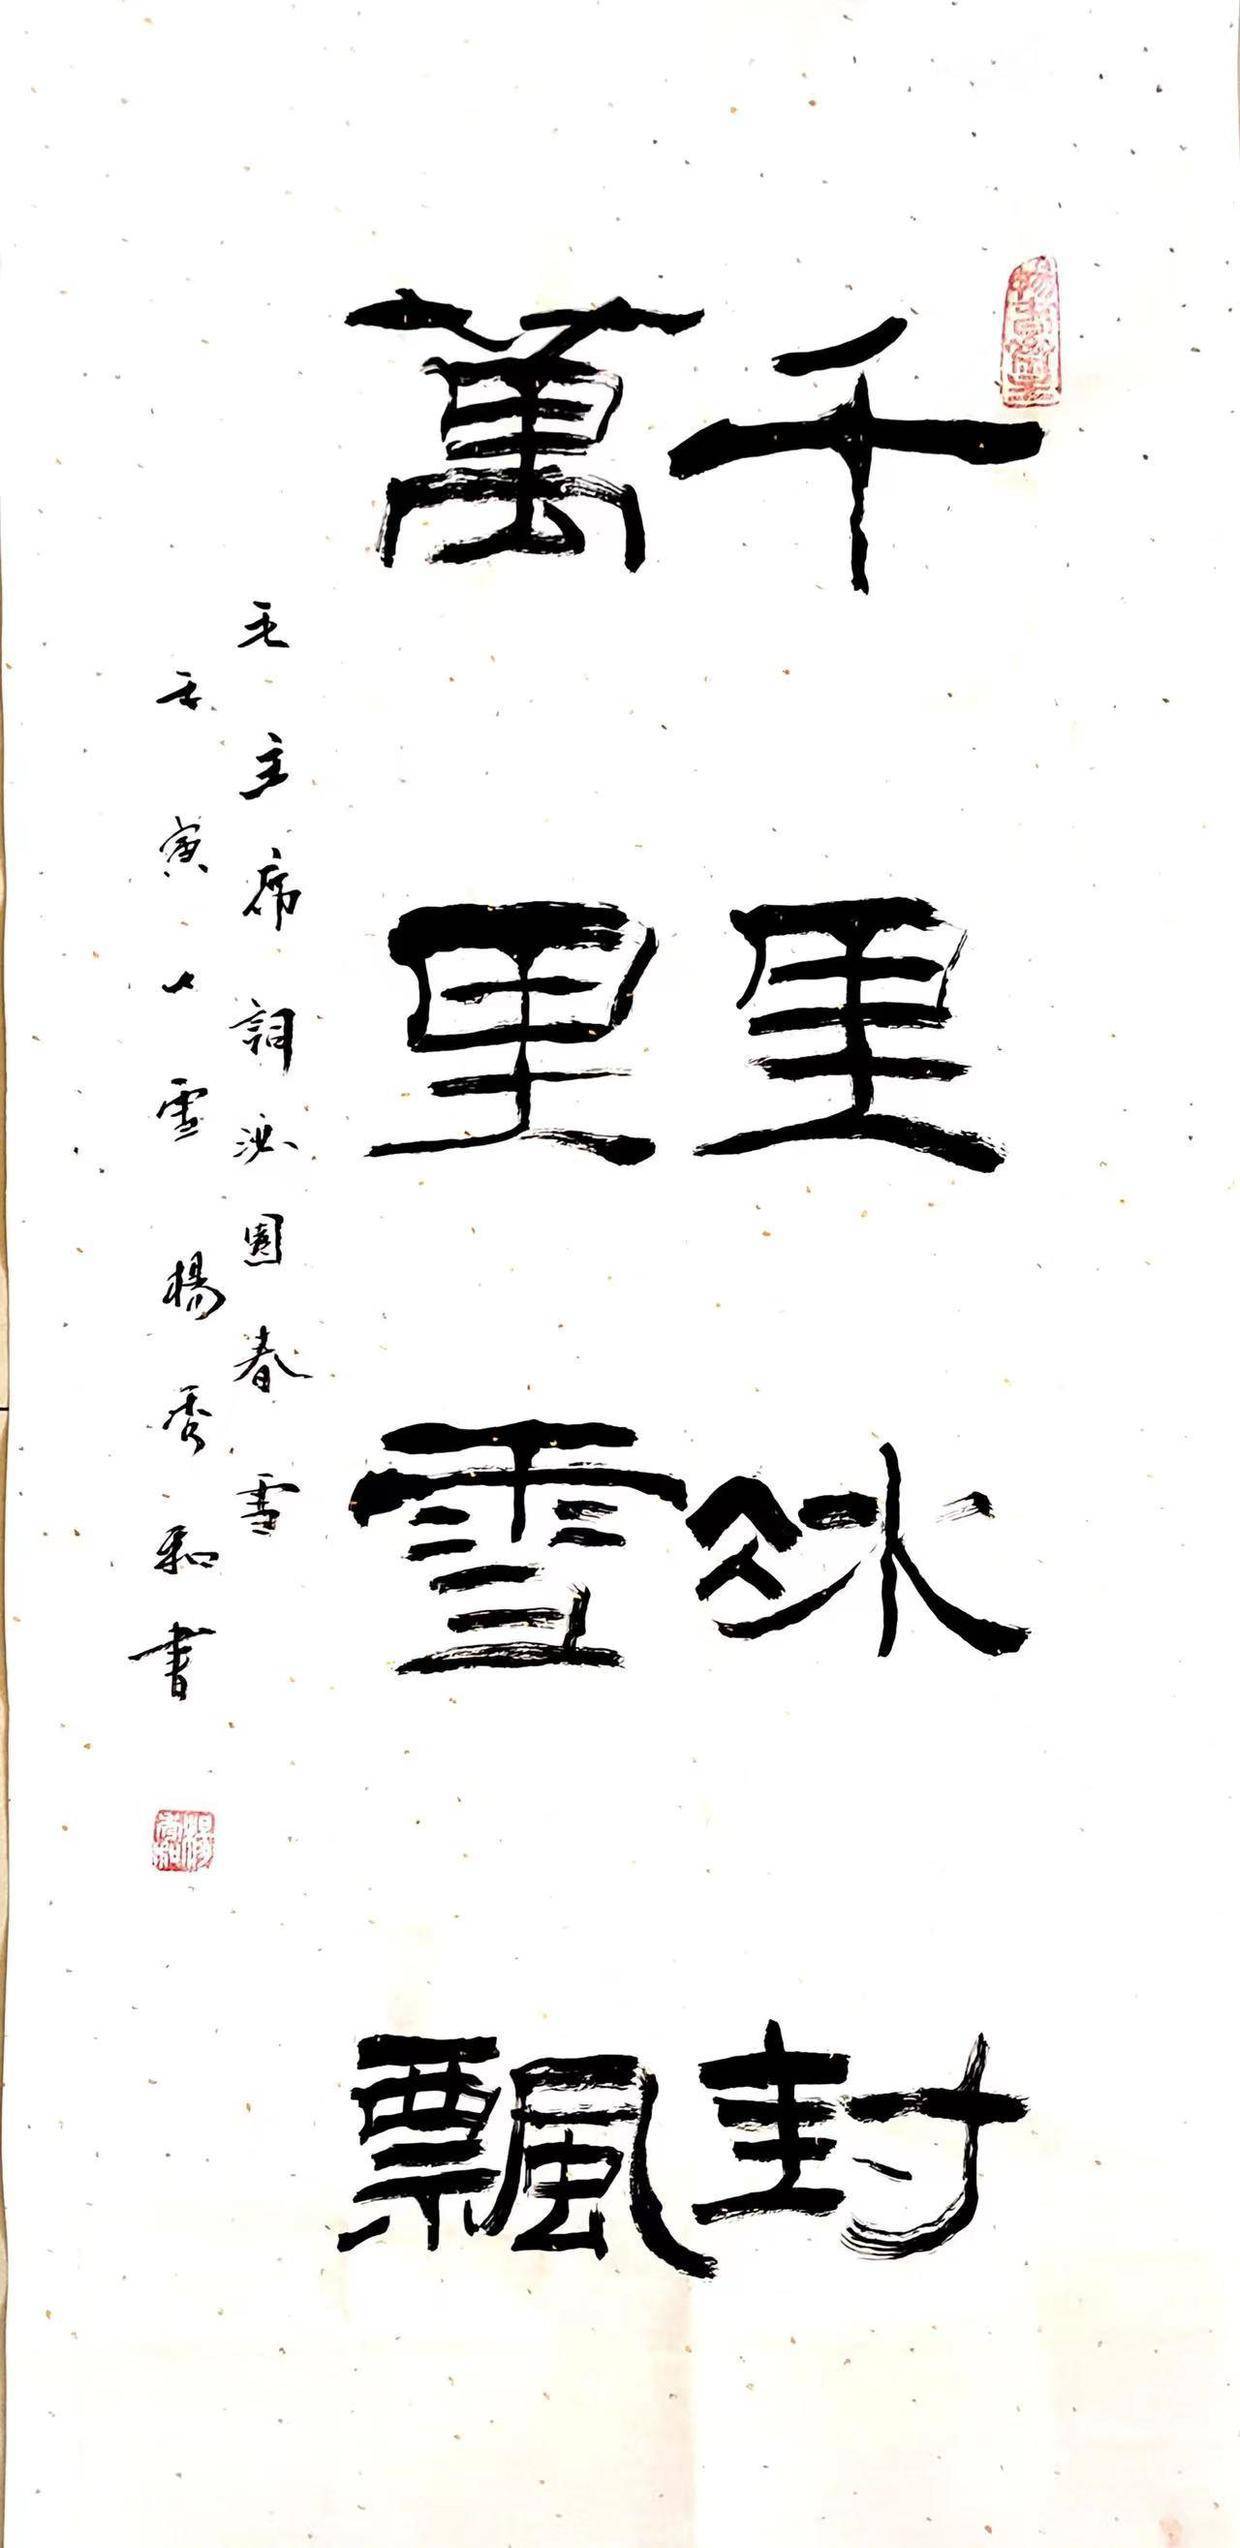 千里冰封
萬里雪飄
毛主席詞沁園春雪
壬寅大雪楊秀和書
楊秀和